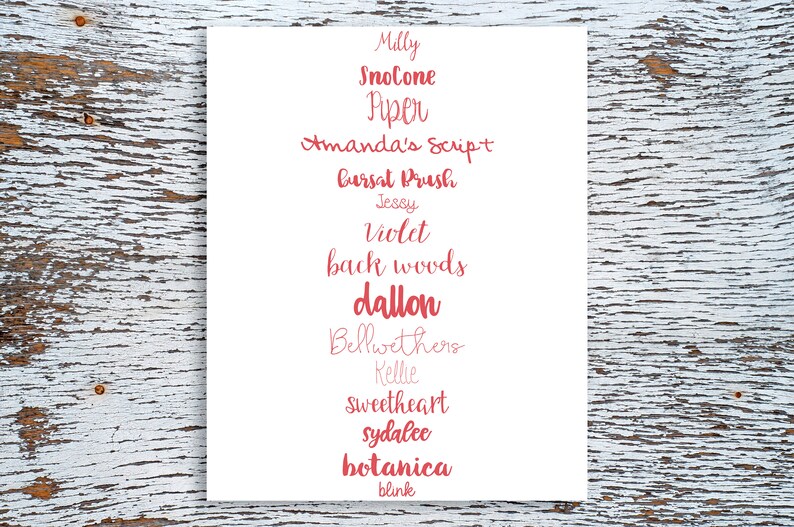 Milly
SnoCone
Piper
Amanda's Script
Bursat Brush
Jessy
Violet
back woods
dallon
Bellwethers
Kellie
sweetheart
sydalee
botanica
blink